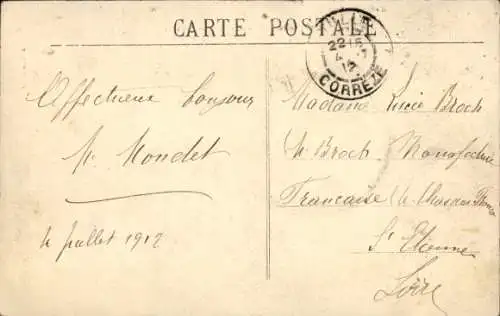 CARTE POSTALE
TULLE
22 15
4 - 7
12
CORRÈZE
Affectueux bonjour
Mondet
4 Juillet 1912
Madame Broch
Broch Manufacture
Francaise
St Etienne
Loire